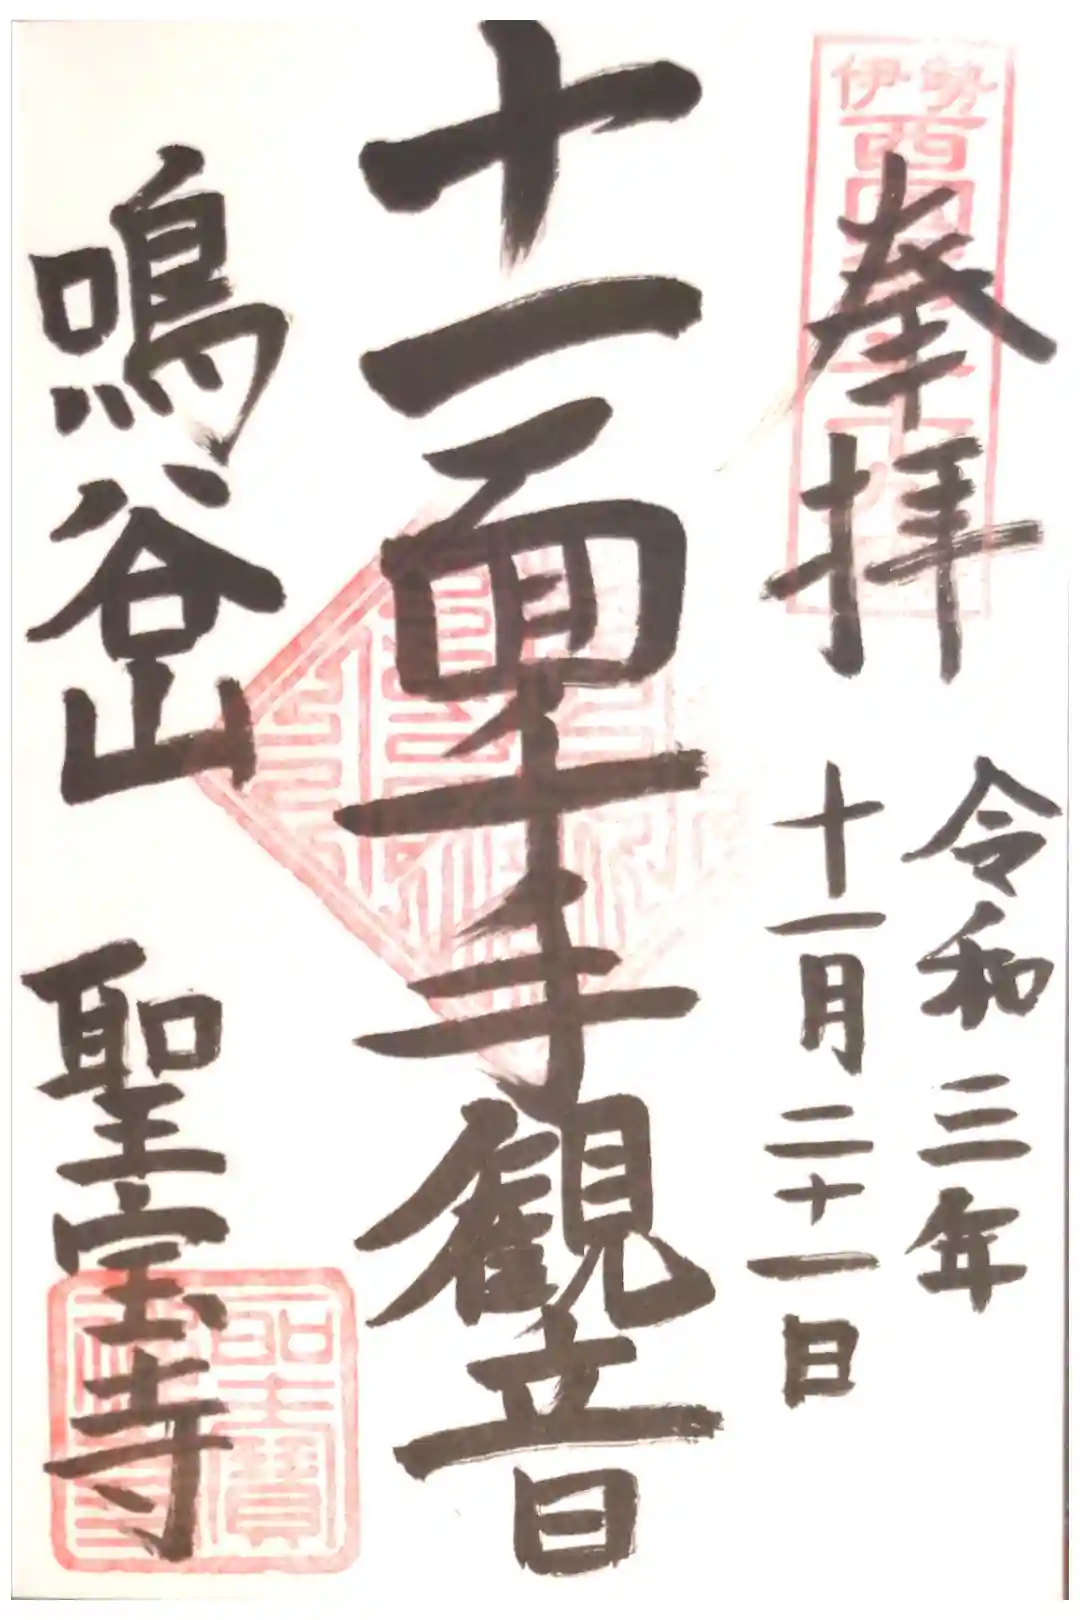 奉拝
令和三年
十一月二十一日
十一面千手観音
鳴谷山
聖宝寺
伊勢
西国
聖寶